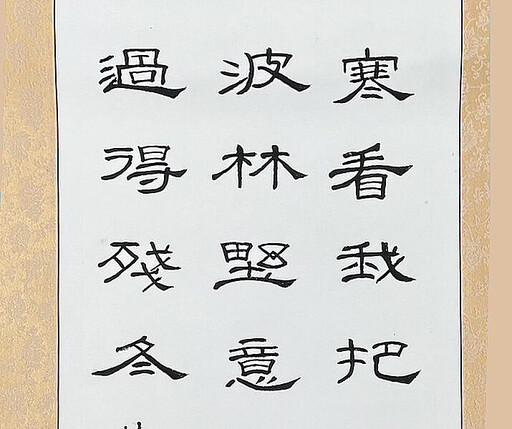 寒看我把
波林野意
過得殘冬